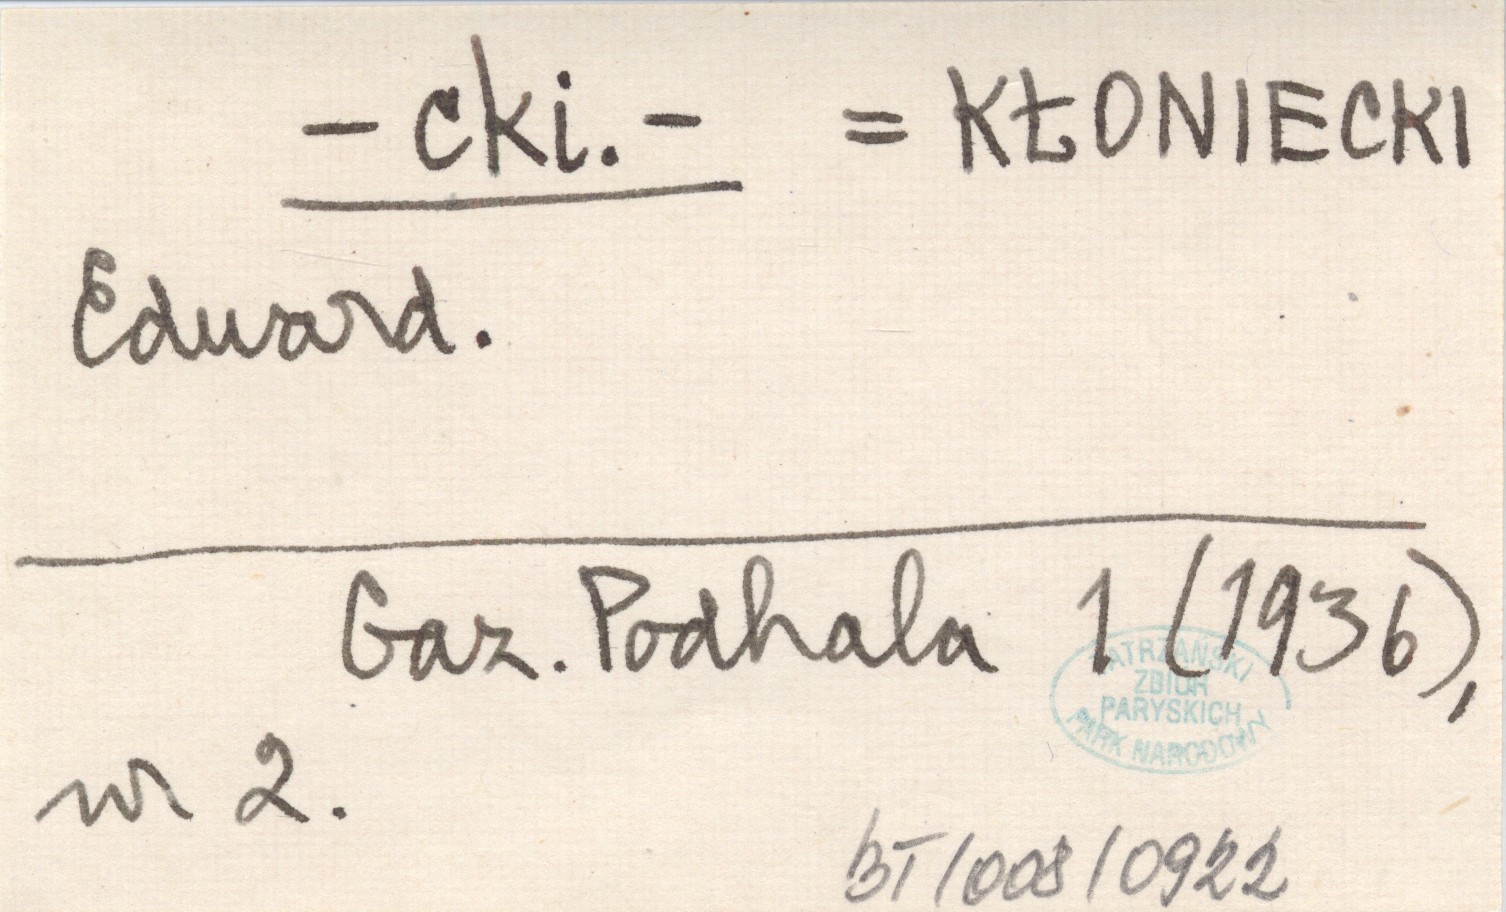 - cki. - = KŁONIECKI
Edward.
Gaz. Podhala 1 (1936),
nr 2.
TATRZAŃSKI
ZBIÓR
PARYSKICH
PARK NARODOWY
BT/008/0922